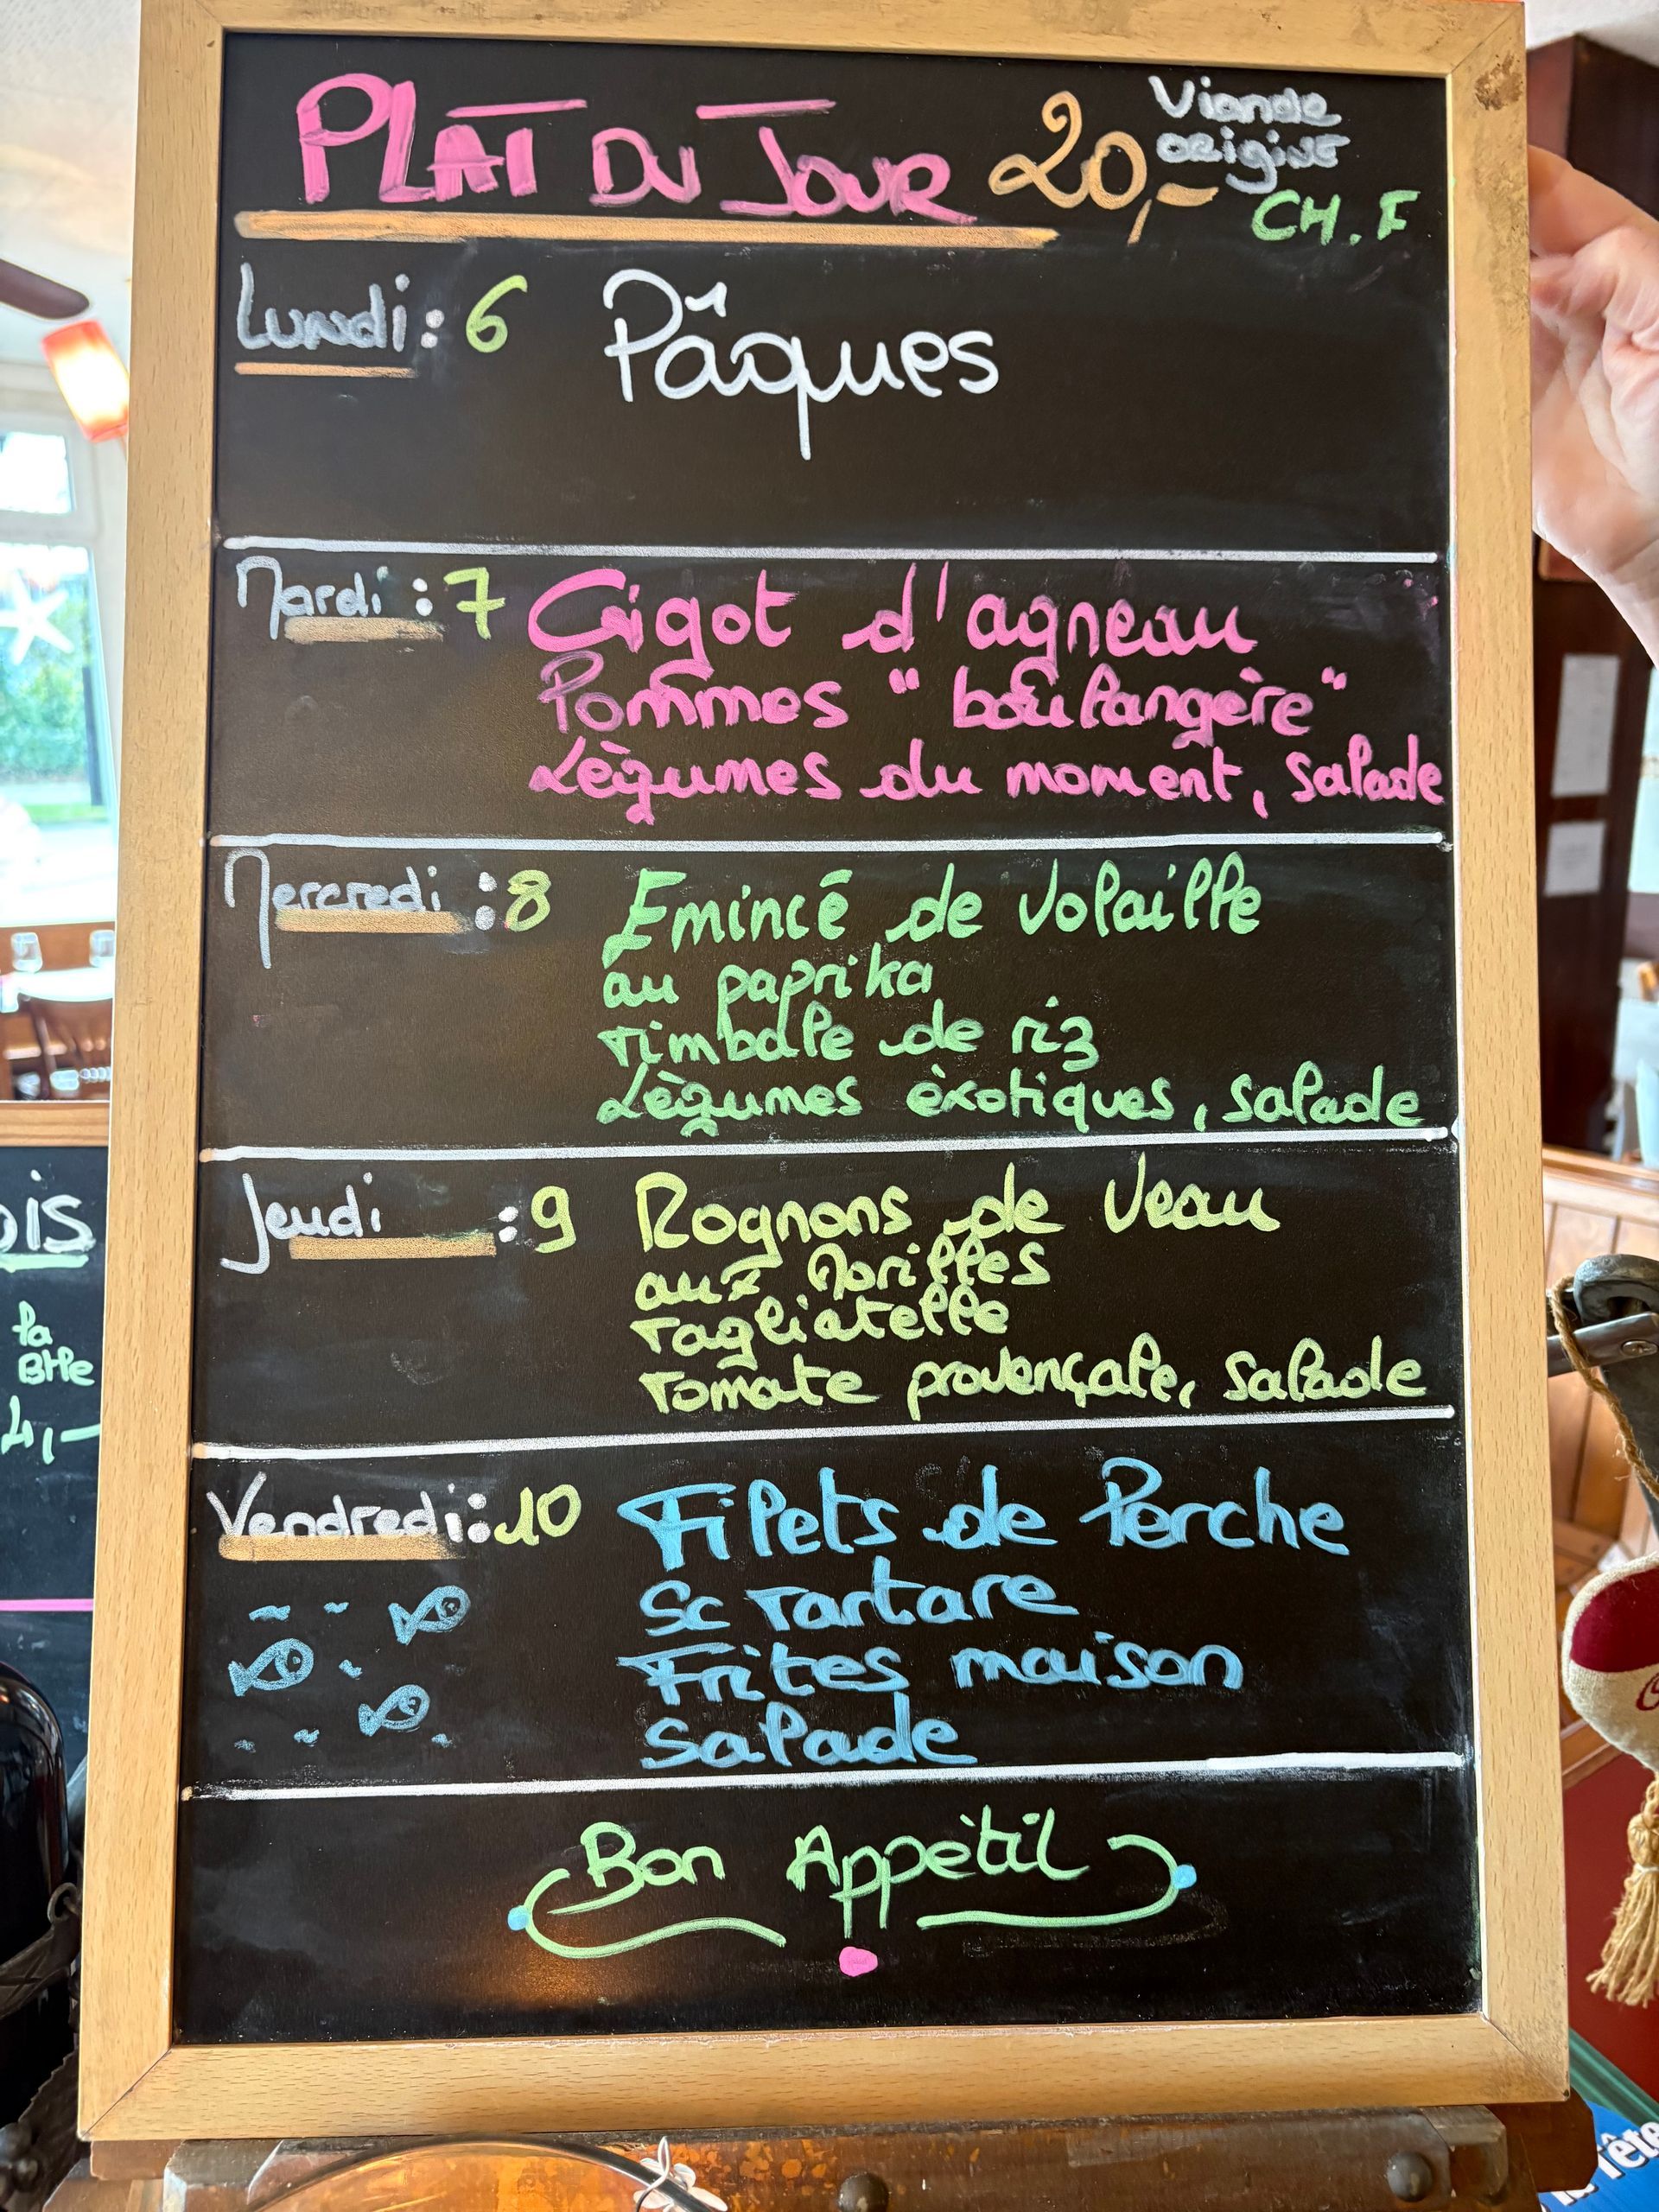 PLAT DU JOUR 20,-
Viande
origine
CH. F
Lundi : 6 Pâques
Mardi : 7 Gigot d'agneau
Pommes "boulangère"
Lègumes du moment, salade
Mercredi : 8 Emincé de Volaille
au paprika
Timbale de riz
Lègumes èxotiques, salade
Jeudi : 9 Rognons de Veau
aux Morilles
Tagliatelle
Tomate provençale, salade
Vendredi : 10 Filets de Perche
Sc Tartare
Frites maison
Salade
Bon Appètit
OIS
la
Btle
4,-